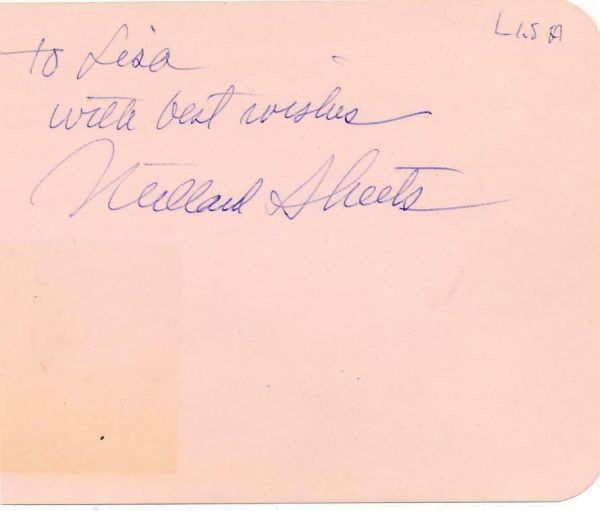 LISA
To Lisa
with best wishes
Millard Sheets